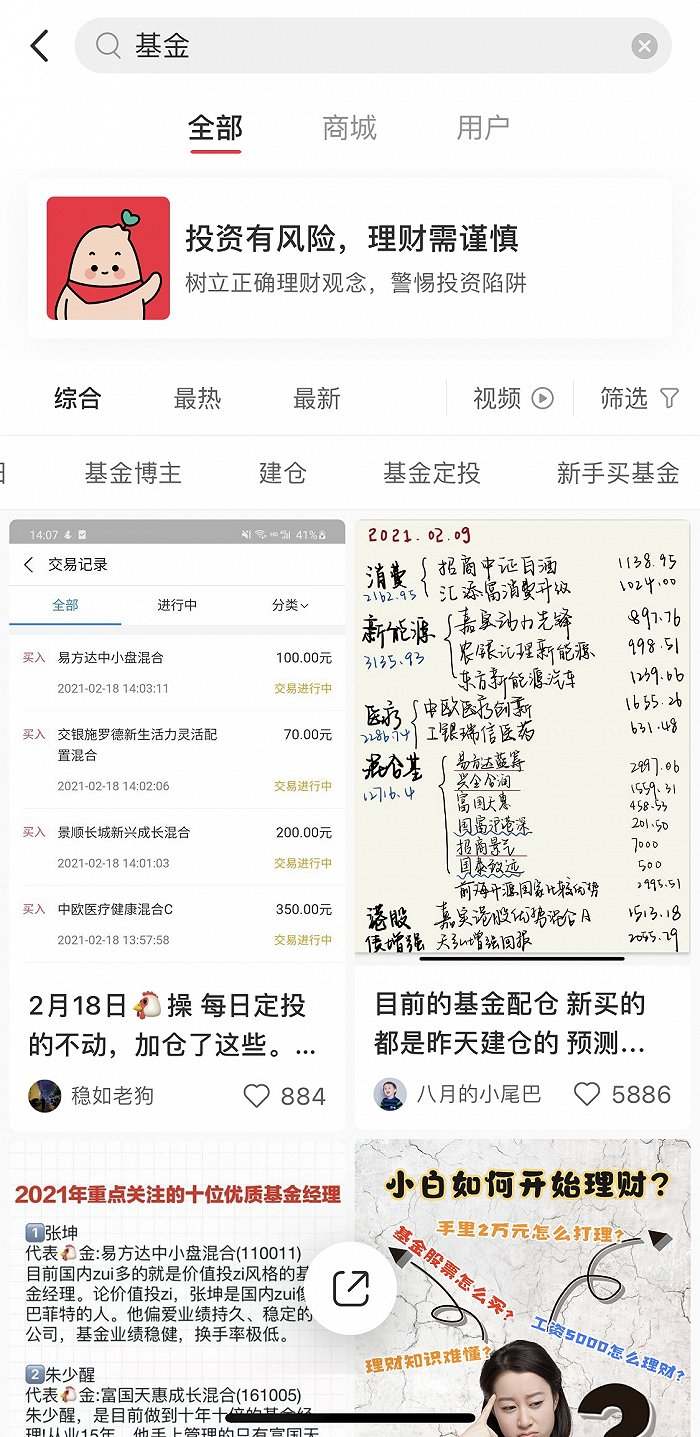 基金
全部
商城
用户
投资有风险，理财需谨慎
树立正确理财观念，警惕投资陷阱
综合
最热
最新
视频
筛选
基金博主
建仓
基金定投
新手买基金
14:07
41%
交易记录
全部
进行中
分类
买入 易方达中小盘混合 100.00元
2021-02-18 14:03:11 交易进行中
买入 交银施罗德新生活力灵活配 70.00元
置混合
2021-02-18 14:02:06 交易进行中
买入 景顺长城新兴成长混合 200.00元
2021-02-18 14:01:03 交易进行中
买入 中欧医疗健康混合C 350.00元
2021-02-18 13:57:58 交易进行中
2月18日🐔操 每日定投
的不动，加仓了这些。...
稳如老狗
884
2021.02.09
消费 招商中证白酒 1138.95
2162.95 汇添富消费升级 1024.00
新能源 嘉实动力先锋 897.76
3135.93 农银汇理新能源 998.51
东方新能源汽车 1239.66
医疗 中欧医疗创新 1655.26
2286.74 工银瑞信医药 631.48
混合基 易方达蓝筹 2997.06
12716.4 兴全合润 1559.31
富国天惠 458.53
国富沪港深 201.50
招商景气 7000
国泰致远 500
前海开源国家比较优势 2995.51
港股 嘉实港股优势混合A 1513.18
债增强 天弘增强回报 2055.29
目前的基金配仓 新买的
都是昨天建仓的 预测...
八月的小尾巴
5886
2021年重点关注的十位优质基金经理
1 张坤
代表🐔金:易方达中小盘混合(110011)
目前国内zui多的就是价值投zi风格的基
金经理。论价值投zi，张坤是国内zui像
巴菲特的人。他偏爱业绩持久、稳定的
公司，基金业绩稳健，换手率极低。
2 朱少醒
代表🐔金:富国天惠成长混合(161005)
朱少醒，是目前做到十年十倍的基金经
小白如何开始理财?
手里2万元怎么打理?
基金股票怎么买?
工资5000怎么理财?
理财知识难懂?
?